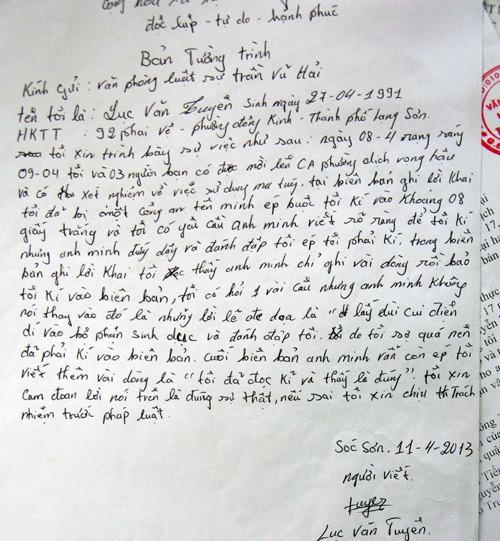 Cộng hòa xã
độc lập - tự do - hạnh phúc
Bản Tường trình
Kính gửi : văn phòng luật sư trần vũ Hải
tên tôi là : Lục Văn Tuyển sinh ngày 27-04-1991
HKTT : 92 phai vệ - phường đông Kinh - Thành phố Lạng Sơn.
tôi xin trình bày sự việc như sau : ngày 08-4 rạng sáng
09-04 tôi và 03 người bạn có được mời lên CA phường dịch vọng hậu
và có thu xét nghiệm về việc sử dụng ma túy. tại biên bản ghi lời Khai
tôi đã bị một công an tên minh ép buộc tôi Kí vào Khoảng 08
giấy trắng và tôi có yêu cầu anh minh viết rõ ràng để tôi kí
nhưng anh minh đứng dậy và đánh đập tôi ép tôi phải Kí, trong biên
bản ghi lời Khai tôi thấy anh minh chỉ ghi vài dòng rồi bảo
tôi Kí vào biên bản, tôi có hỏi 1 vài câu nhưng anh minh không
nói thay vào đó là những lời lẽ đe dọa là " lấy dùi cui điện
dí vào bộ phận sinh dục và đánh đập tôi. do tôi sợ quá nên
đã phải Kí vào biên bản. cuối biên bản anh minh vẫn còn ép tôi
viết thêm vài dòng là "tôi đã đọc kĩ và thấy là đúng", tôi xin
cam đoan lời nói trên là đúng sự thật, nếu sai tôi xin chịu trách
nhiệm trước pháp luật.
Sóc Sơn. 11-4-2013
người viết.
tuyển
Lục Văn Tuyển.